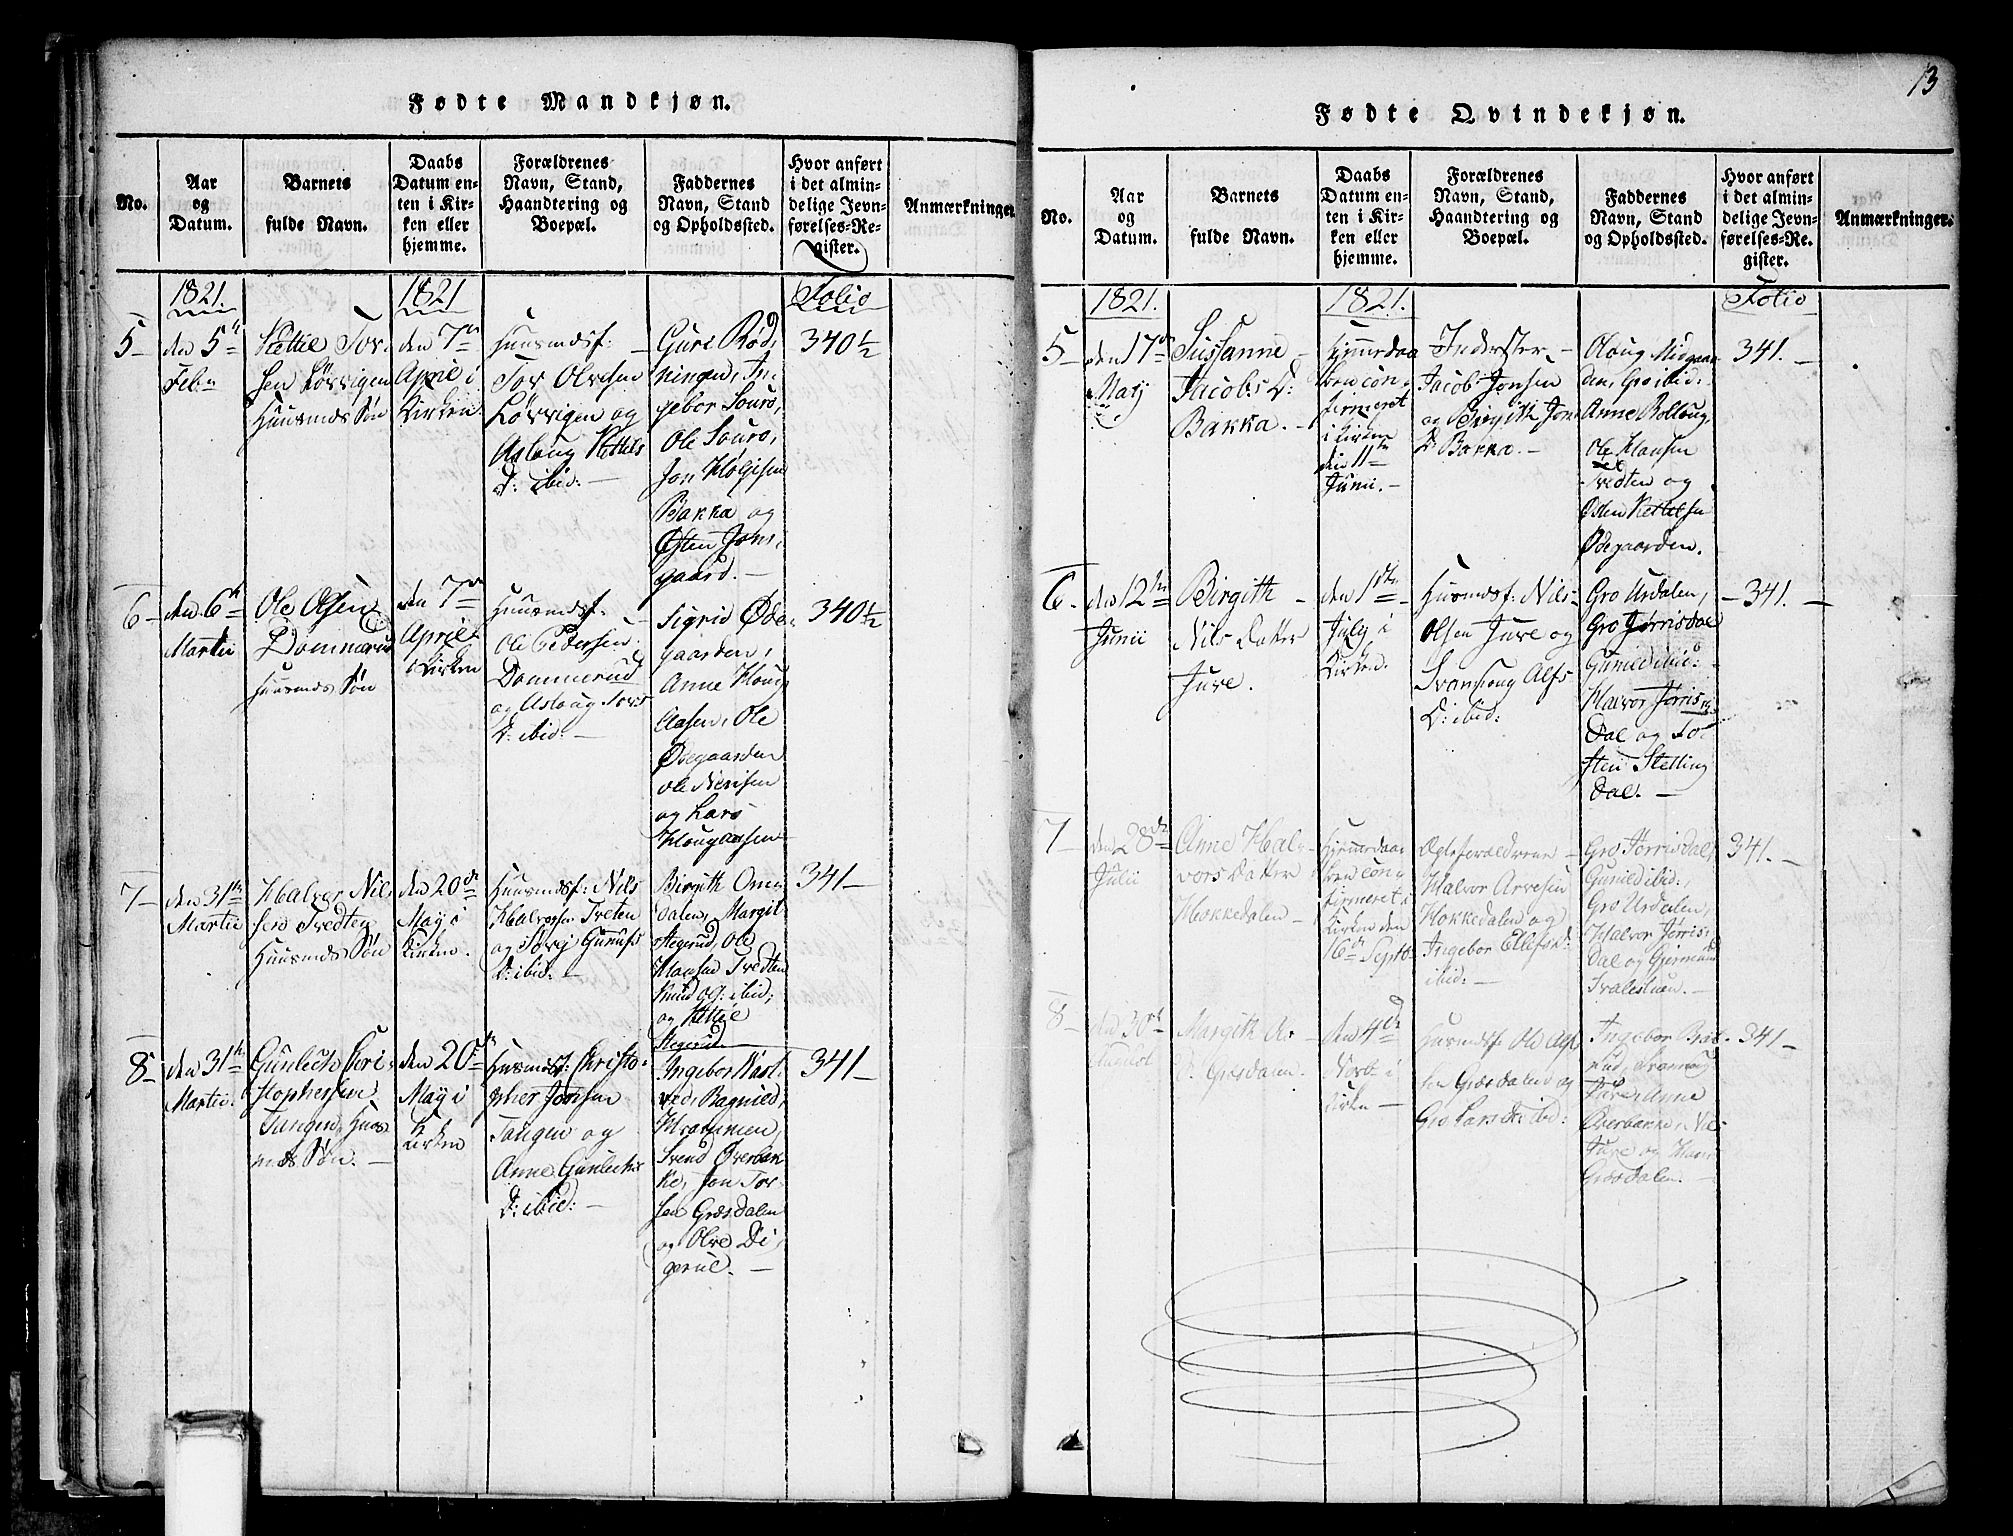 13
Fødte Mandkjøn.
No.
Aar
og
Datum.
Barnets
fulde Navn.
Daabs
Datum en-
ten i Kir-
ken eller
hjemme.
Forældrenes
Navn, Stand,
Haandtering og
Boepæl.
Faddernes
Navn, Stand
og Opholdssted.
Hvor anført
i det almin-
delige Jevn-
førelses-Re-
gister.
Anmærkninger.
1821.
1821
Folio
5
den 5te
Febr
Kettil Tor-
sen Løvvigen
Huusmds Søn
den 7de
April i
Kirken.
Huusmdsf:
Tor Olvesen
Løvvigen og
Aslaug Kettils
D: ibid: —
Guro Rød,
ningen, In,
gebor Souro,
Ole Souro,
Jon Høljesen
Bakka og
Østen Jons,
gaard. —
340½
6
den 6te
Martii
Ole Olsen
Dommerud
Huusmds Søn
den 7de
April
i Kirken
Huusmdsf:
Ole Pedersen
Dommerud
og Aslaug Tors
D: ibid: —
Sigrid Øde,
gaarden,
Anne Houg
Aasen, Ole
Ødegaarden
Ole
og Lars
Hougaasen
340½
7
den 31te
Martii
Halvor Nil-
sen Tvedten
Huusmds Søn
den 20de
May i
Kirken.
Huusmdsf: Nils
Halvorsen Tveten
og Torbj Gunulfs
D: ibid: —
Birgith Om,
dalen, Margit
Stegerud, Ole
Hansen Tvedten
Knud og: ibid;
og Kettil
Stegerud
341 —
8
den 31te
Martii
Gunlech Chri-
stophersen
Tangen, Huus-
mds Søn. —
den 20de
May i
Kirken
Huusmdsf: Christo-
pher Jonsen
Tangen og
Anne Gunlechs
D: ibid: —
Ingebor
Svend Overbak-
ke, Jon Tor-
sen Græsdalen
og Olve Di,
gerud. —
341 —
Fødte Qvindekjøn.
No.
Aar
og
Datum.
Barnets
fulde Navn.
Daabs
Datum en-
ten i Kir-
ken eller
hjemme.
Forældrenes
Navn, Stand,
Haandtering og
Boepæl.
Faddernes
Navn, Stand
og Opholdssted.
Hvor anført
i det almin-
delige Jevn-
førelses-Re-
gister.
Anmærkninger.
1821.
1821.
Folio
5
den 17de
Maij
Susanne
Jacobs D:
Bakka. —
Hjemmedaa
ben con,
firmeret
i Kirken
den 11te
Junii. —
Inderster —
Jacob Jonsen
og Birgith Jons
D: Bakka. —
Oloug Midgaar-
den, Gro ibid:
Anne Bolloug,
Ole Hansen
Tvedten og
Østen Kettelsen
Ødegaarden.
341. —
6
den 12te
Junii
Birgith
Nils Datter
Juve.
den 1ste
July i
Kirken.
Husmdsf: Nils
Olsen Juve og
Svanoug Alfs
D: ibid:
Gro Urdalen,
Gro Jørrisdal
Gunild ibid:
Halvor Jørris-
dal og Tor-
sten Stelling
dal. —
341. —
7
den 28de
Julii
Anne Hal-
vors Datter
Hokkedalen —
Hjemmedaa-
ben con,
firmeret i
Kirken den
16de Septb.
Ægteforældrene —
Halvor Arvesen
Hokkedalen og
Ingebor Ellefs D:
ibid: —
Gro Jørrisdal,
Gunild ibid:,
Gro Urdalen,
Halvor Jørris-
dal og Gjermund
341. —
8
den 30te
August
Margith
D: Græsdalen. —
den 4de
Novb: i
Kirken —
Husmdsf: Ole Alf-
sen Græsdalen og
Gro Lars D: ibid:
Ingebor
rud, Svanoug
Juve, Anne
Overbakke, Nils
Juve og Hans
Græsdalen. —
341 —